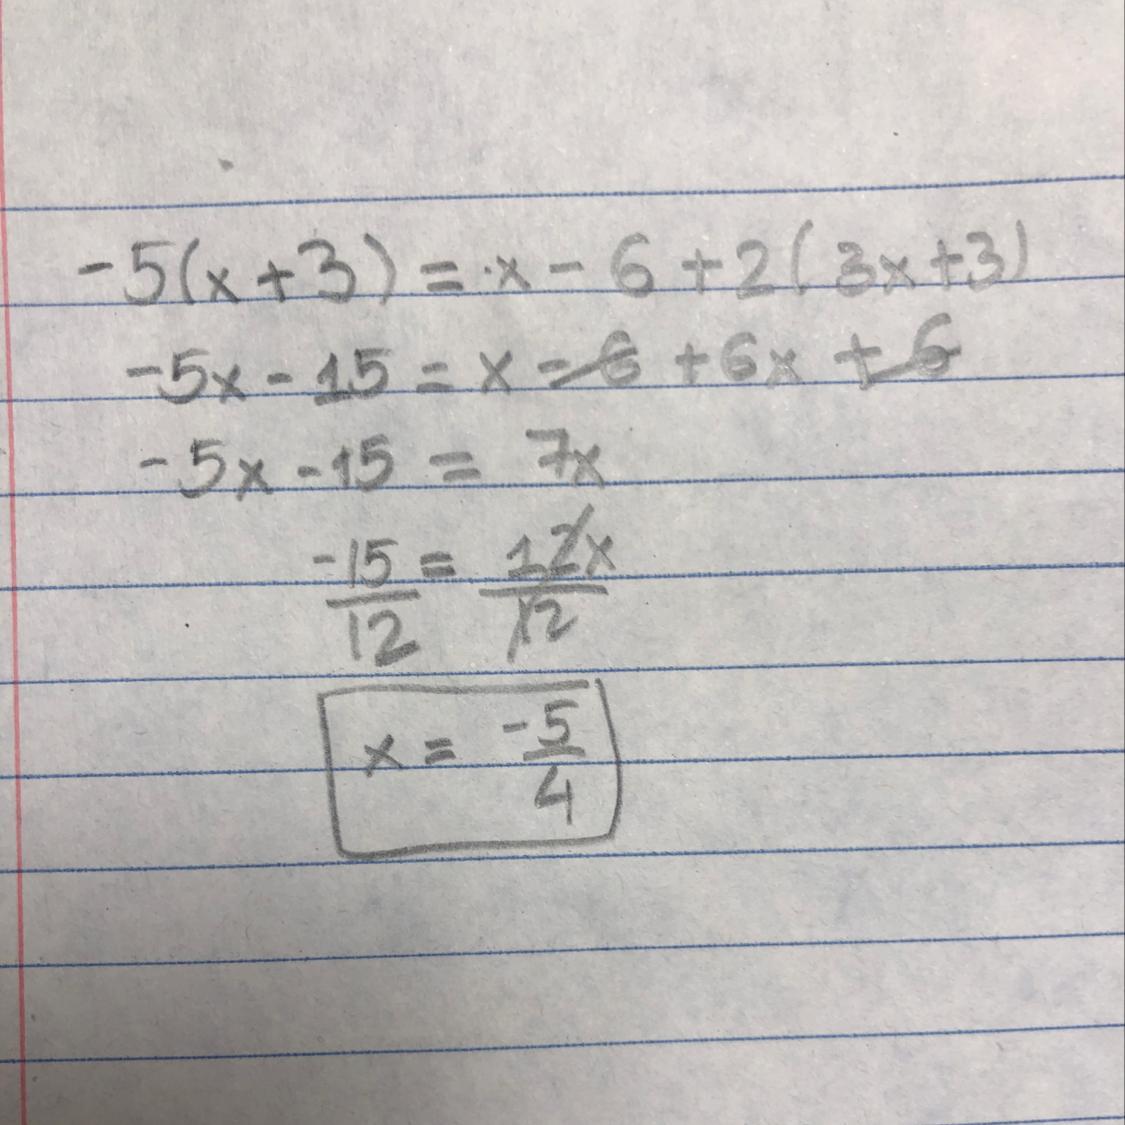 -5(x+3) = x - 6 + 2(3x+3)
-5x - 15 = x - 6 + 6x + 6
-5x - 15 = 7x
-15/12 = 12x/12
x = -5/4